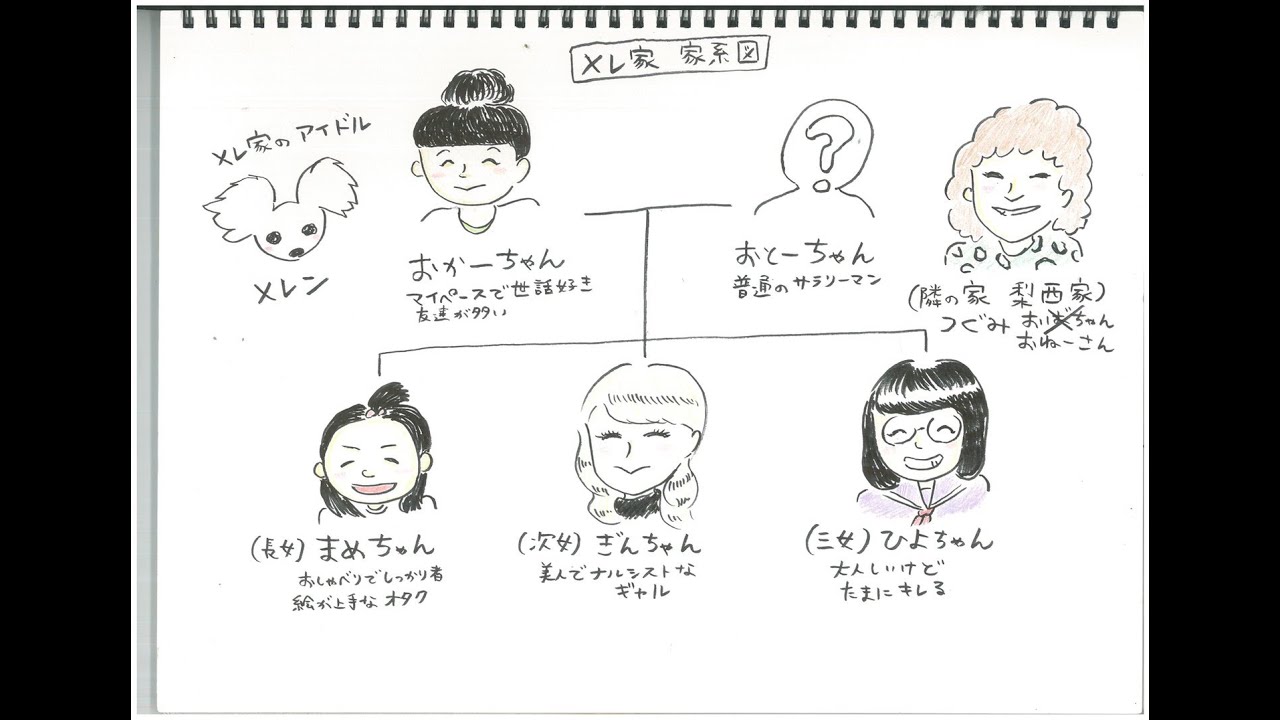 メレ家 家系図
メレ家のアイドル
メレン
おかーちゃん
マイペースで世話好き
友達が多い
?
おとーちゃん
普通のサラリーマン
(隣の家 梨西家)
つぐみ おばちゃん
おねーさん
(長女) まめちゃん
おしゃべりでしっかり者
絵が上手な オタク
(次女) ぎんちゃん
美人でナルシストな
ギャル
(三女) ひよちゃん
大人しいけど
たまに キレる